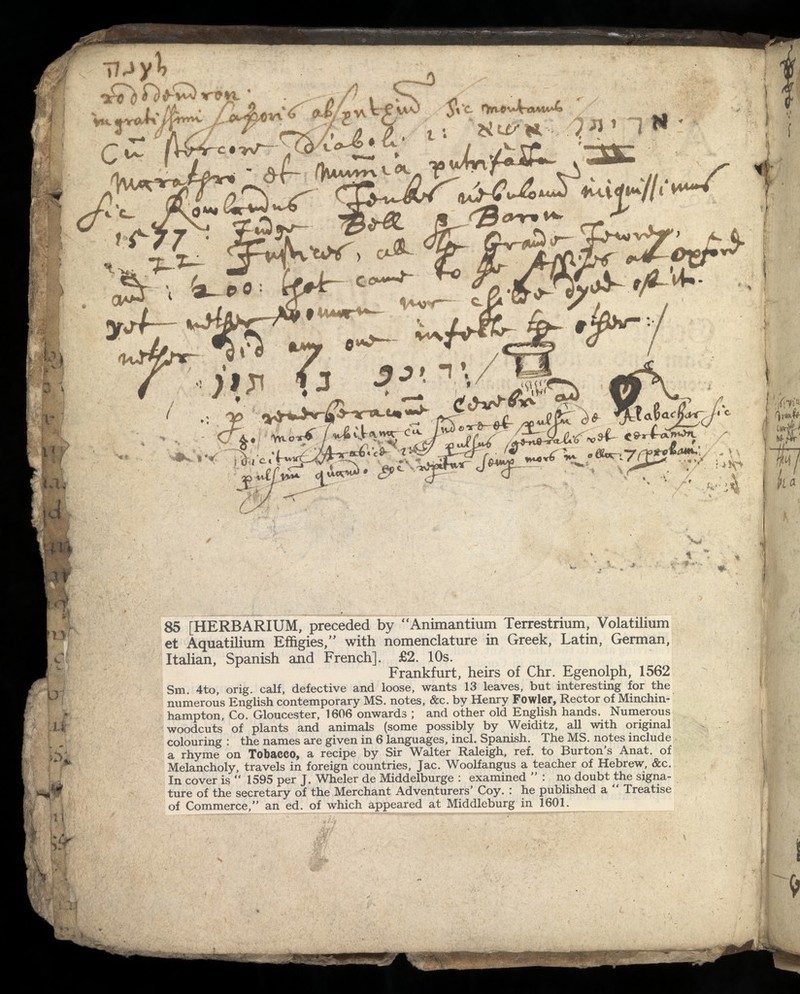 לענה
rododendron
ingratissimi saporis absyntium sic montanus
Cū stercore Diaboli
Marathro et Mummia putrifacta
sic Rowlandus Jenkes nebulonū iniquissimus
1577 : Judge Bell & Baron
22 Justices, all the Grande Jewrey,
and 200: that came to the Assizes at oxford
yet nether woomen nor childe dyed of it.
nether did any one infecte the other :/
p reverberationē Cerebri ad
mors subitanea cū sudore et pulsu de Alabachar sic
dicitur Arabice pulsus generalis vel certamen
pulsuū quando semp mors in olla : probam
85 [HERBARIUM, preceded by "Animantium Terrestrium, Volatilium
et Aquatilium Effigies," with nomenclature in Greek, Latin, German,
Italian, Spanish and French]. £2. 10s.
Frankfurt, heirs of Chr. Egenolph, 1562
Sm. 4to, orig. calf, defective and loose, wants 13 leaves, but interesting for the
numerous English contemporary MS. notes, &c. by Henry Fowler, Rector of Minchin-
hampton, Co. Gloucester, 1606 onwards ; and other old English hands. Numerous
woodcuts of plants and animals (some possibly by Weiditz, all with original
colouring : the names are given in 6 languages, incl. Spanish. The MS. notes include
a rhyme on Tobacco, a recipe by Sir Walter Raleigh, ref. to Burton's Anat. of
Melancholy, travels in foreign countries, Jac. Woolfangus a teacher of Hebrew, &c.
In cover is " 1595 per J. Wheler de Middelburge : examined " : no doubt the signa-
ture of the secretary of the Merchant Adventurers' Coy. : he published a " Treatise
of Commerce," an ed. of which appeared at Middleburg in 1601.